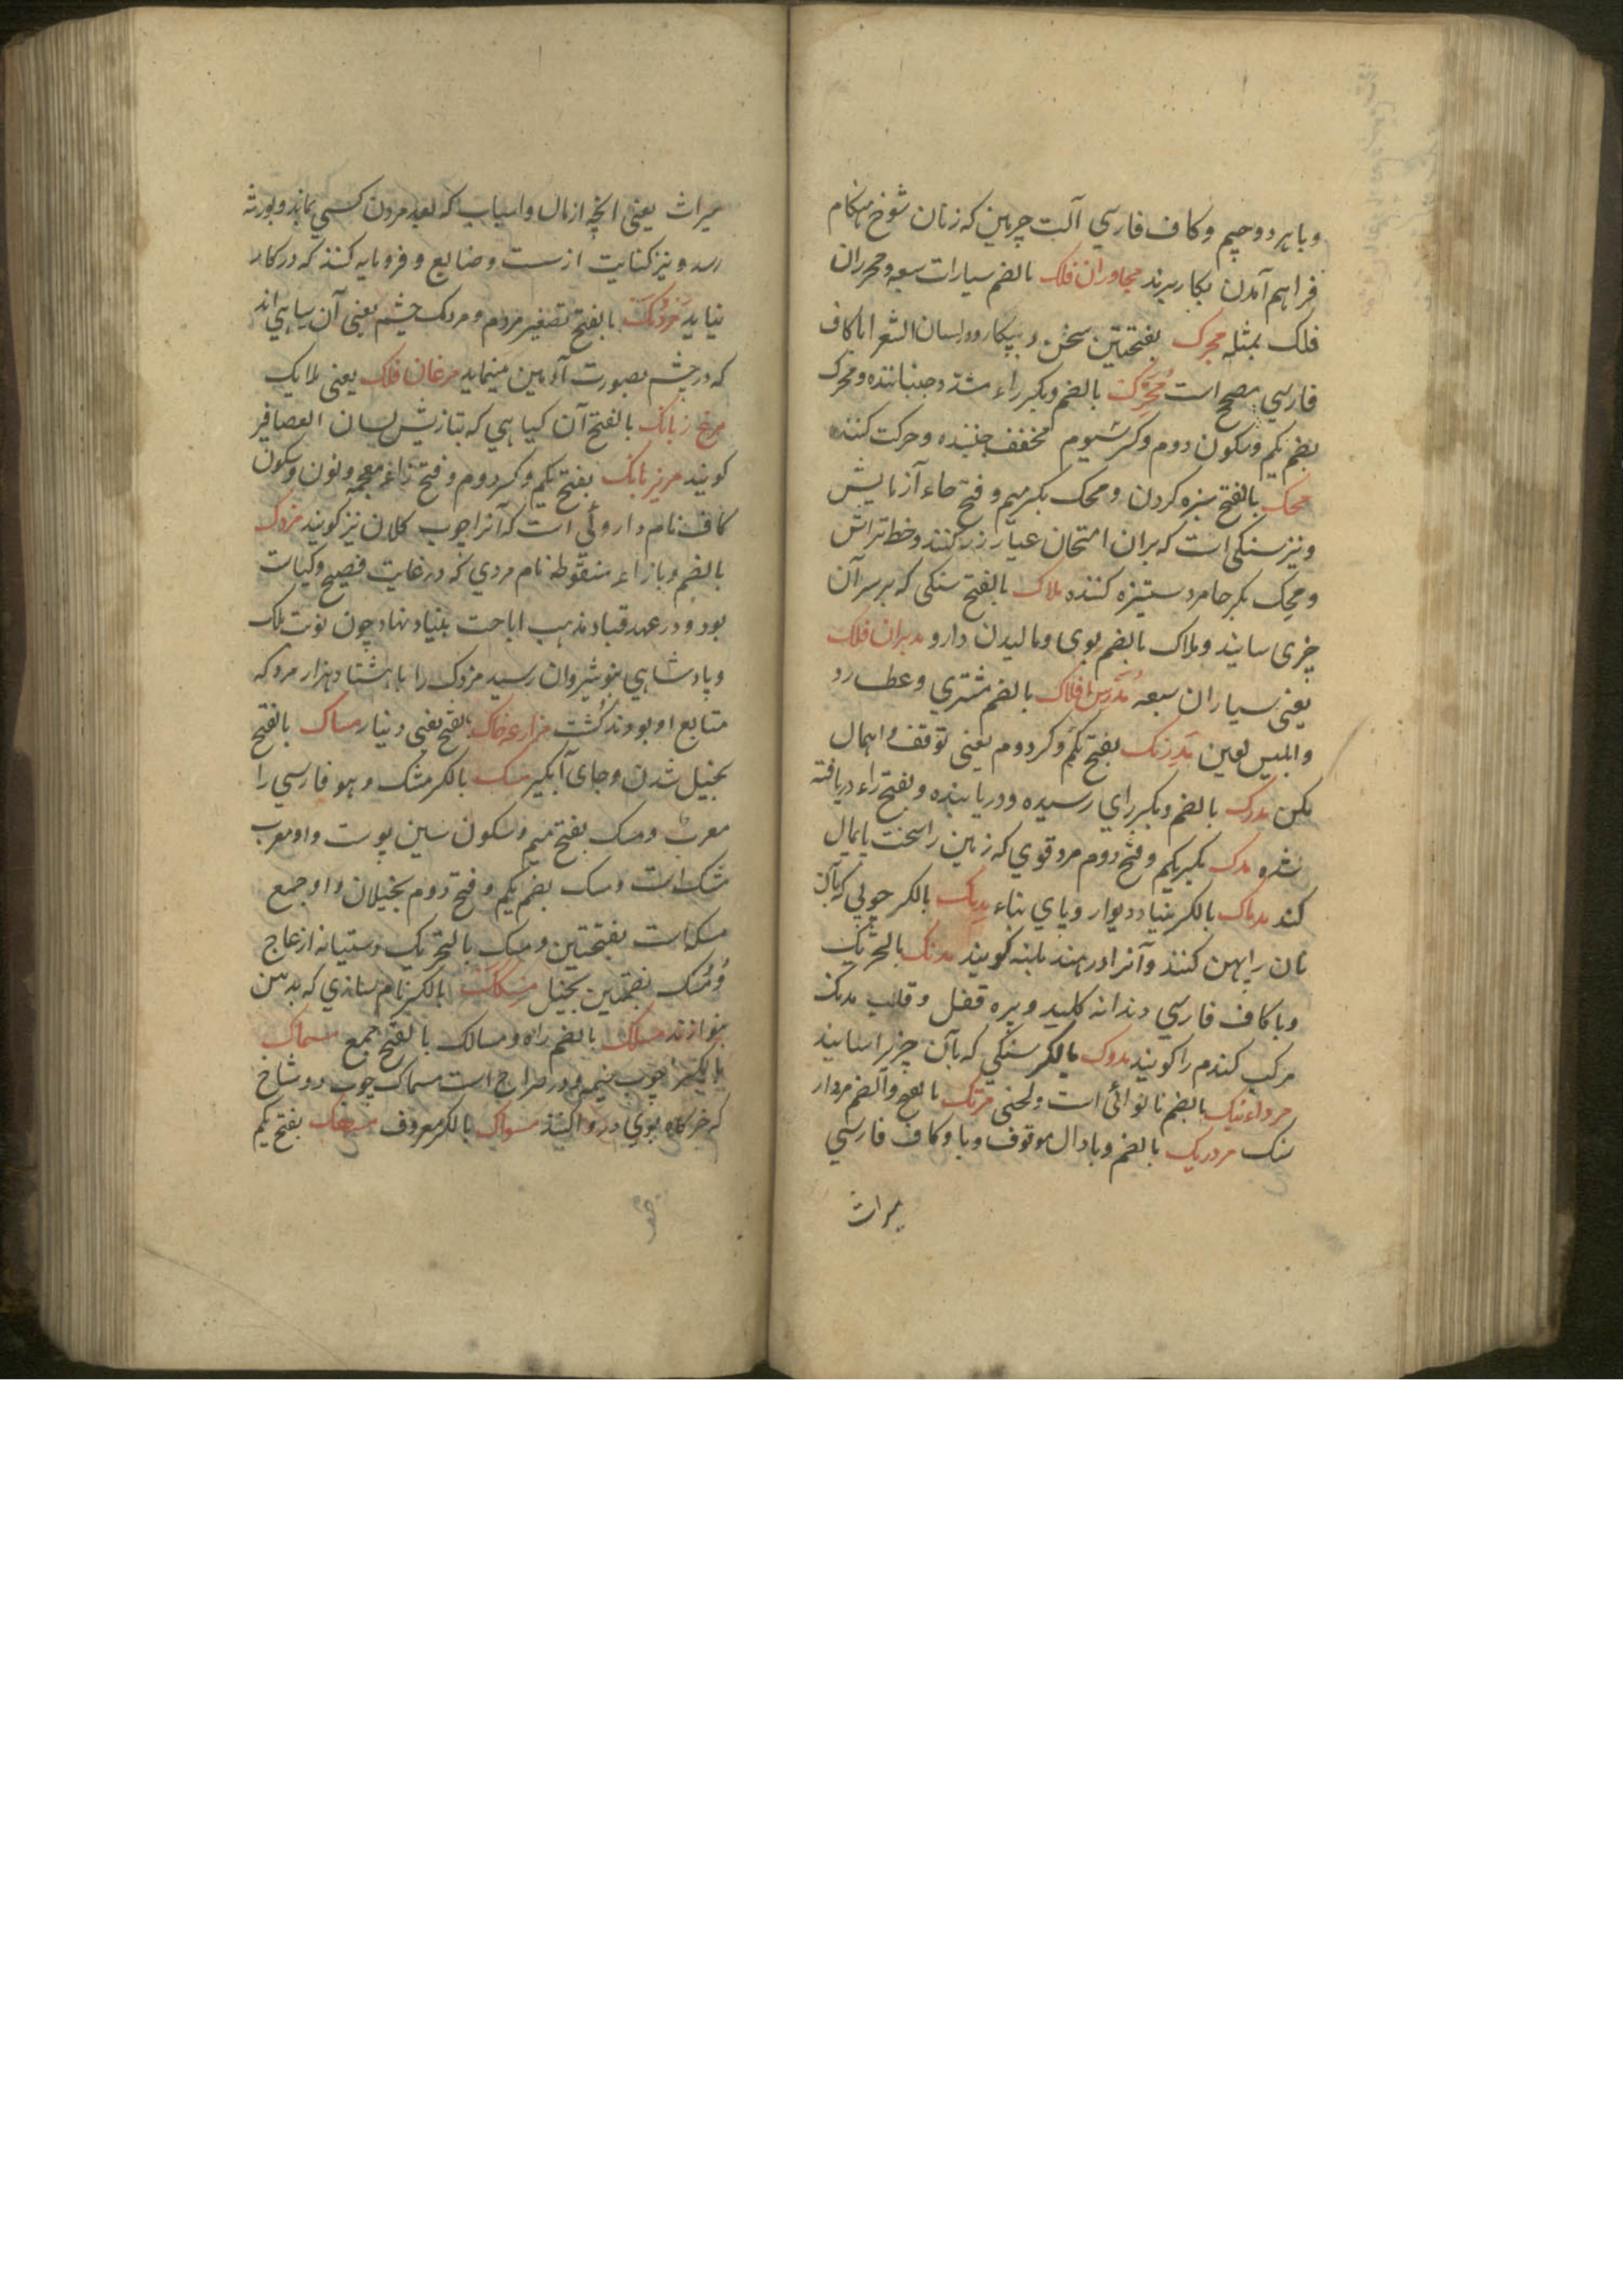 وبا هر دو جیم وکاف فارسي آلت چرمین که زنان شوخ هنکام
فراهم آمدن بکار برند مجاوران فلک بالضم سیارات سبعه ومحرران
فلک بمثله مجرک بفتحتین سخن و بیکار ودر لسان الشعرا با کاف
فارسي مصحح است محرک بالضم وبکسر راء مشدد جنباننده ومحرک
بضم یکم وسکون دوم وکسر سیوم مخفف جنبنده وحرکت کننده
محک بالفتح ستیزه کردن ومحک بکسر میم وفتح حاء آزمایش
ونیز سنکی است که بران امتحان عیار زر کنند وخط تراش
ومحک بکسر حا مرد ستیزه کننده ملاک بالفتح سنکی که بر سر آن
چیزی سایند وملاک بالضم بوی ومالیدن دارو مدبران فلک
یعني سیاران سبعه مدرس افلاک بالضم مشتري وعطارد
وابلیس لعین مدرنک بفتح یکم وکسر دوم یعنی توقف واهمال
مکن مدرک بالضم وبکسر راي رسیده ودریابنده وبفتح راء دریافته
شده مدک بکسر یکم وفتح دوم مرد قوي که زمین را سخت پایمال
کند مدماک بالکسر بنیاد دیوار وپاي بناء مدملک بالکسر چوبي که بآن
نان را پهن کنند وآنرا در هند بلنه کویند مدنک بالتحریک
وبا کاف فارسي دندانه کلید وپره قفل وقلب مدنک
مرکب کندم را کویند مدوک بالکسر سنکي که بآن چیزیرا سایند
مرداءنیک بالضم نا نوائی است ولحنی مرتک بالفتح والضم مردار
سنک مردریک بالضم وبا دال موقوف وبا وکاف فارسي
میراث
میراث یعنی انچه از مال واسباب که بعد مردن کسي بماند وبورثه
رسد و نیز کنایت از سست وضایع وفرومایه کنند که در کار
نیاید مردمک بالفتح تصغیر مردم ومردمک چشم یعنی آن سیاهي اند
که در چشم بصورت آدمین مینماید مرغان فلک یعنی ملایک
مرغ زبانک بالفتح آن کیاهي که بتازیش لسان العصافیر
کویند مریزبانک بفتح یکم وکسر دوم وفتح زاء معجمه ونون وسکون
کاف نام داروئي است که آنرا چوب کلان نیز کویند مزدک
بالضم وبا زاء منقوطه نام مردي که در غایت فصیح وکیاست
بود ودر عهد قباد مذهب اباحت بنیاد نهاد چون نوبت ملک
وپادشاهي بنوشیروان رسید مزدک را با هشتاد هزار مرد که
متابع او بودند کشت مزارعه خاک بفتح یعنی دنیا مساک بالفتح
بخیل شدن وجای آبکیر مسک بالکسر مشک وهو فارسي را
معرب ومسک بفتح میم وسکون سین پوست واو معرب
مشک است ومسک بضم یکم وفتح دوم بخیلان واو جمع
مسکه است بفتحتین ومسک بالتحریک دستیانه از عاج
ومسک بضمتین بخیل مسکک بالکسر نام سازي که بدهن
بنوازند مسلک بالضم راه ومسالک بالفتح جمع مسماک
بالکسر چوب خیمه ودر صراح است مسماک چوب دو شاخ
که خرکاه بوي دروا کنند مسواک بالکسر معروف مسهک بفتح یکم